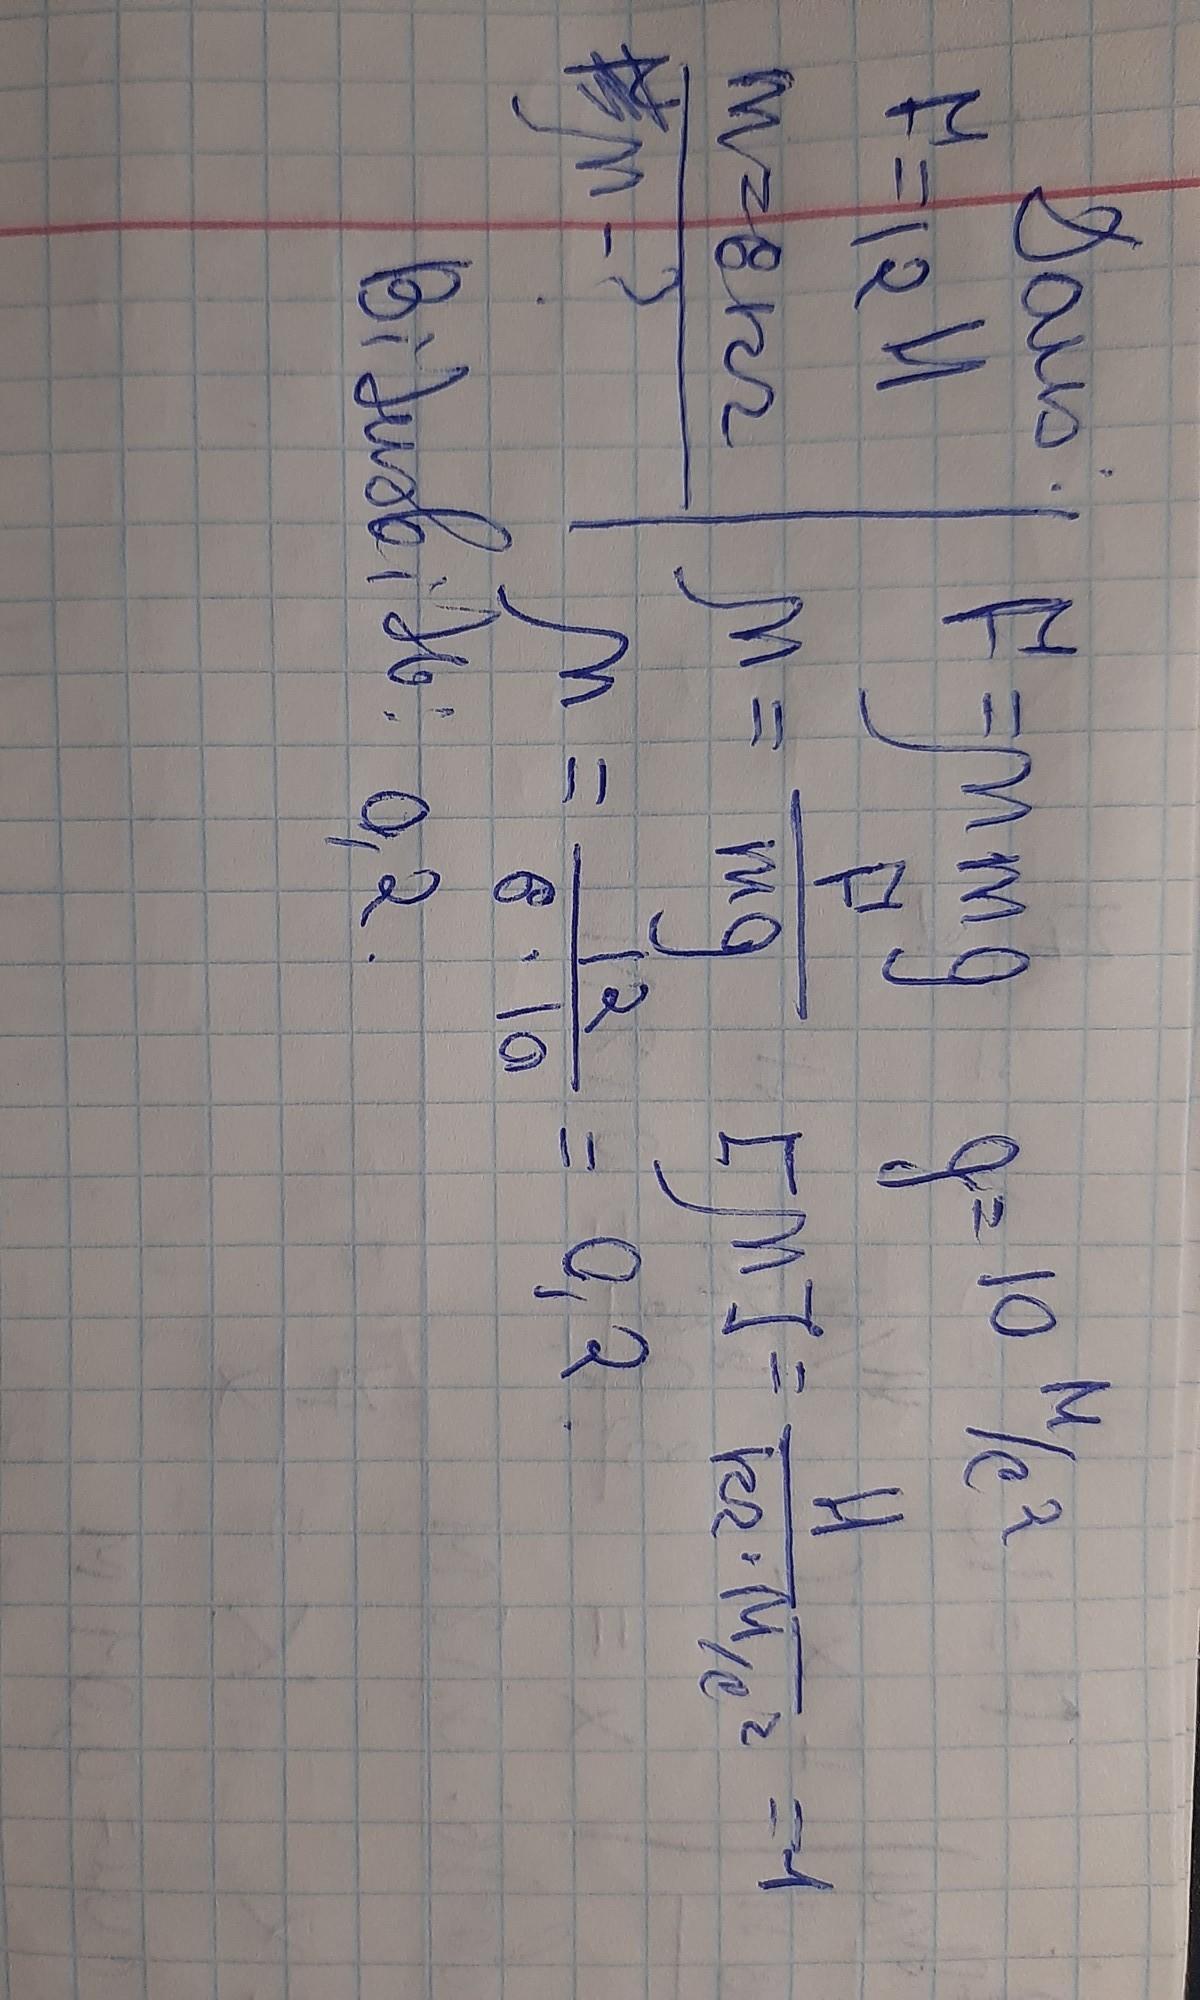 Дано:
F = 12 Н
m = 8 кг
μ - ?
F = μmg   g = 10 м/с²
μ = F/mg   [μ] = Н/кг·м/с² = 1
μ = 12/6·10 = 0,2.
Відповідь: 0,2.